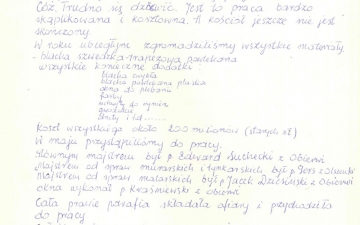 Cóż. Trudno się dziwić. Jest to praca bardzo
skąplikowana i kosztowna. A kościół jeszcze nie jest
skończony
W roku ubiegłym zgromadziliśmy wszystkie materiały
- blacha szwedzka-trapezowa powlekana
wszystkie konieczne dodatki:
blacha zwykła
blacha powlekana płaska
okna do plebanii
farby
uchwyty do rynien
gwoździe
śruby i td....
Koszt wszystkiego około 200 milionów (starych zł)
W maju przystąpiliśmy do pracy.
Głównym majstrem był p Edward Suchecki z Obierwi
Majstrem od spraw murarskich i tynkarskich był p
Majstrem od spraw malarskich był p Jacek z Obierwi
okna wykonał p Kraśniewski z Obierwi
Cała prawie parafia składała ofiary i przychodziła
do pracy